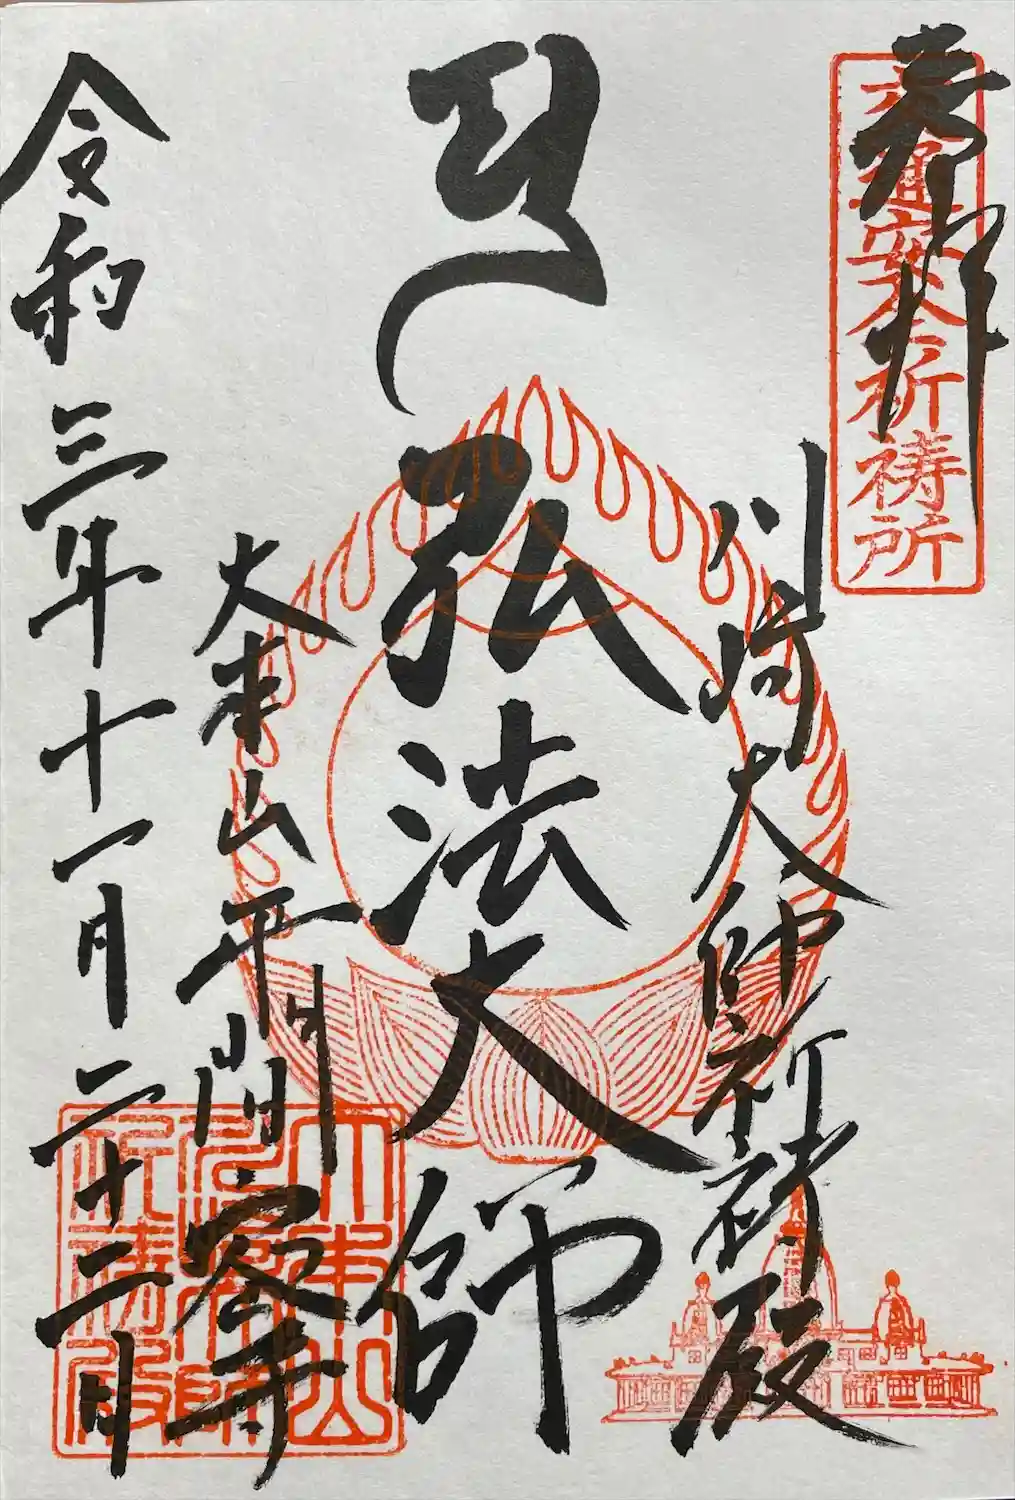 奉拝
交通安全祈祷所
川崎大師祈祷殿
弘法大師
大本山平間寺
令和三年十一月二十二日
大本山
川崎大師
祈祷殿